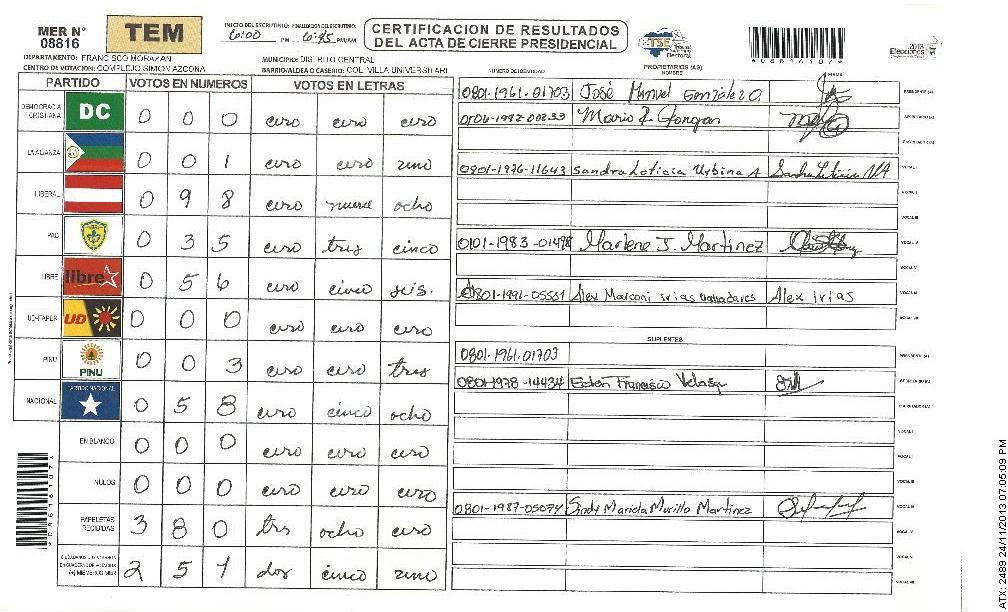 MER N° 08816
TEM
INICIO DEL ESCRUTINIO: 6:00 PM FINALIZACION DEL ESCRUTINIO: 6:45 PM/AM
CERTIFICACION DE RESULTADOS
DEL ACTA DE CIERRE PRESIDENCIAL
TSE Tribunal Supremo Electoral
2013
Elecciones
DEPARTAMENTO: FRANCISCO MORAZAN
MUNICIPIO: DISTRITO CENTRAL
CENTRO DE VOTACION: COMPLEJO SIMON AZCONA
BARRIO/ALDEA O CASERIO: COL. VILLA UNIVERSITARI
PARTIDO VOTOS EN NUMEROS VOTOS EN LETRAS
DEMOCRACIA CRISTIANA DC 0 0 0 cero cero cero
LA ALIANZA 0 0 1 cero cero uno
LIBERAL 0 9 8 cero nueve ocho
PAC 0 3 5 cero tres cinco
LIBRE libre 0 5 6 cero cinco seis.
UD-FAPER UD 0 0 0 cero cero cero
PINU PINU 0 0 3 cero cero tres
NACIONAL PARTIDO NACIONAL 0 5 8 cero cinco ocho
EN BLANCO 0 0 0 cero cero cero
NULOS 0 0 0 cero cero cero
PAPELETAS RECIBIDAS 3 8 0 tres ocho cero
(+) MIEMBROS MER 2 5 1 dos cinco uno
NUMERO DE IDENTIDAD
PROPIETARIOS (AS)
NOMBRE
FIRMA
0801-1961-01703 José Manuel Gonzalez O. PRESIDENTE (A)
Mario
SECRETARIO (A)
0801-1976-11643 Sandra Leticia Urbina A VOCAL I
VOCAL II
VOCAL III
0101-1983-01498 Marlene J. Martinez VOCAL IV
VOCAL V
0801-1991-05551 Alex Marconi irias Alex irias VOCAL VI
VOCAL VII
SUPLENTES
0801-1961-01703 PRESIDENTE (A)
0801-1978-14434 Francisco
SECRETARIO (A)
VOCAL I
VOCAL II
0801-1987-05074 Sindy Mariela Murillo Martinez
VOCAL IV
VOCAL V
VOCAL VI
VOCAL VII
ATX: 2489 24/11/2013 07:05:09 PM